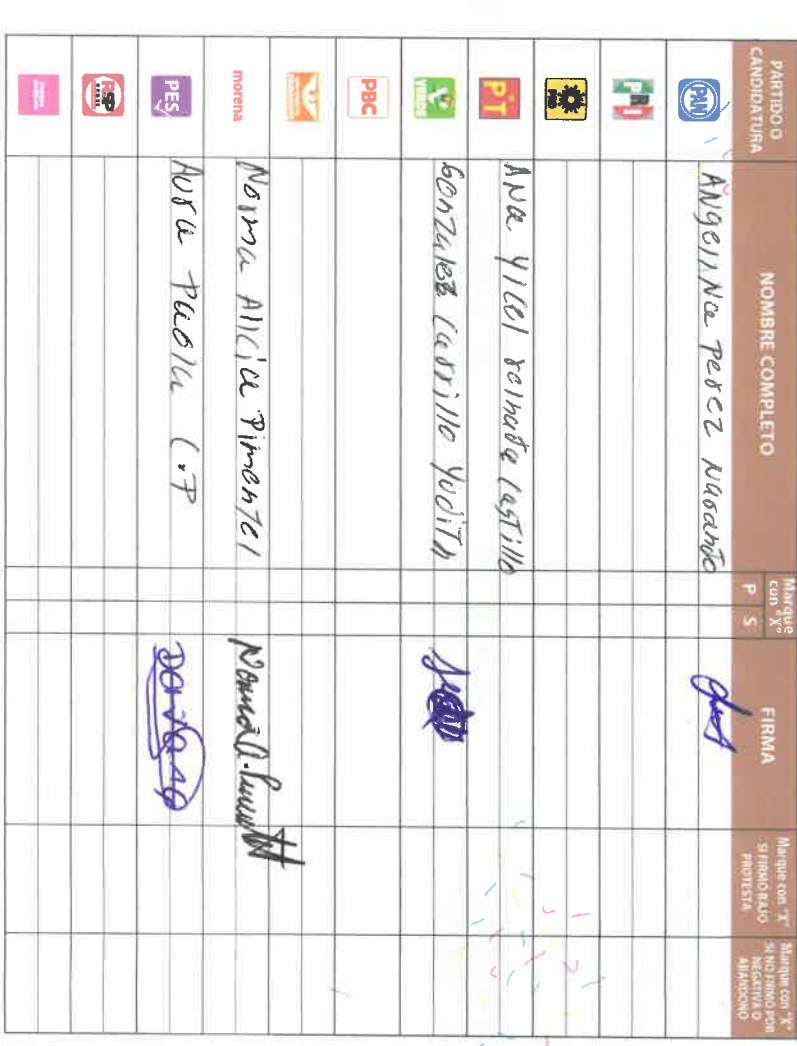 PARTIDO O CANDIDATURA
NOMBRE COMPLETO
Marque con "X"
P S
FIRMA
Marque con "X" SI FIRMÓ BAJO PROTESTA
Marque con "X" SI NO FIRMÓ POR NEGATIVA O ABANDONO
PAN
ANgelina Perez
PRI
PRD
PT
ANa Yicel reinada Castillo
VERDE
Gonzalez Carrillo Yudith
PBC
morena
Norma Alicia Pimentel
PES
Aura Paola C.P
RSP